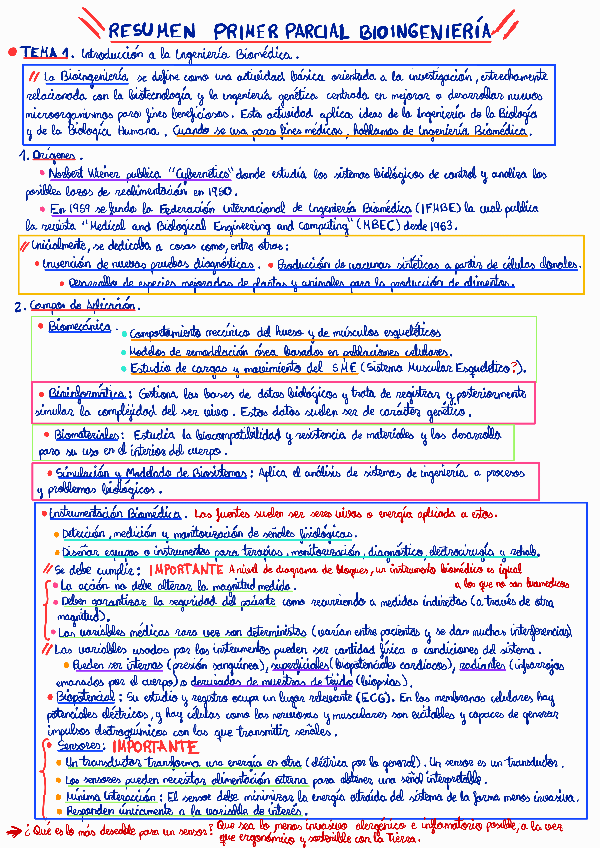 RESUMEN PRIMER PARCIAL BIOINGENIERÍA
TEMA 1. Introducción a la Ingeniería Biomédica.
// La Bioingeniería se define como una actividad básica orientada a la investigación, estrechamente
relacionada con la biotecnología y la ingeniería genética centrada en mejorar o desarrollar nuevos
microorganismos para fines beneficiosos. Esta actividad aplica ideas de la Ingeniería de la Biología
y de la Biología Humana. Cuando se usa para fines médicos, hablamos de Ingeniería Biomédica.
1. Orígenes.
• Norbert Wiener publica "Cybernetics" donde estudia los sistemas biológicos de control y analiza los
posibles lazos de realimentación en 1950.
• En 1959 se funda la Federación Internacional de Ingeniería Biomédica (IFMBE) la cual publica
la revista "Medical and Biological Engineering and Computing" (MBEC) desde 1963.
// Inicialmente, se dedicaba a cosas como, entre otras:
• Invención de nuevas pruebas diagnósticas. • Producción de vacunas sintéticas a partir de células clonales.
• Desarrollo de especies mejoradas de plantas y animales para la producción de alimentos.
2. Campos de Aplicación.
• Biomecánica. • Comportamiento mecánico del hueso y de músculos esqueléticos
• Modelos de remodelación ósea basados en poblaciones celulares.
• Estudio de cargas y movimiento del SME (Sistema Muscular Esquelético?).
• Bioinformática: Gestiona las bases de datos biológicos y trata de registrar y posteriormente
simular la complejidad del ser vivo. Estos datos suelen ser de carácter genético.
• Biomateriales: Estudia la biocompatibilidad y resistencia de materiales y los desarrolla
para su uso en el interior del cuerpo.
• Simulación y Modelado de Biosistemas: Aplica el análisis de sistemas de ingeniería a procesos
y problemas biológicos.
• Instrumentación Biomédica. Las fuentes suelen ser seres vivos o energía aplicada a estos.
• Detección, medición y monitorización de señales fisiológicas.
• Diseñar equipos o instrumentos para terapias, monitorización, diagnóstico, electrocirugía y rehab.
// Se debe cumplir: IMPORTANTE A nivel de diagrama de bloques, un instrumento biomédico es igual
a los que no son biomédicos
• La acción no debe alterar la magnitud medida.
• Deben garantizar la seguridad del paciente como recurriendo a medidas indirectas (a través de otra
magnitud).
• Las variables médicas rara vez son deterministas (varían entre pacientes y se dan muchas interferencias)
// Las variables usadas por los instrumentos pueden ser cantidad física o condiciones del sistema.
• Pueden ser internas (presión sanguínea), superficiales (biopotenciales cardíacos), radiantes (infrarrojos
emanados por el cuerpo) o derivadas de muestras de tejido (biopsias).
• Biopotencial: Su estudio y registro ocupa un lugar relevante (ECG). En las membranas celulares hay
potenciales eléctricos, y hay células como las nerviosas y musculares son excitables y capaces de generar
impulsos electroquímicos con las que transmitir señales.
• Sensores: IMPORTANTE
• Un transductor transforma una energía en otra (eléctrica por lo general). Un sensor es un transductor.
• Los sensores pueden necesitar alimentación externa para obtener una señal interpretable.
• Mínima interacción: El sensor debe minimizar la energía extraída del sistema de la forma menos invasiva.
• Responden únicamente a la variable de interés.
→ ¿Qué es lo más deseable para un sensor? Que sea lo menos invasivo alergénico e inflamatorio posible, a la vez
que ergonómico y sostenible con la Tierra.